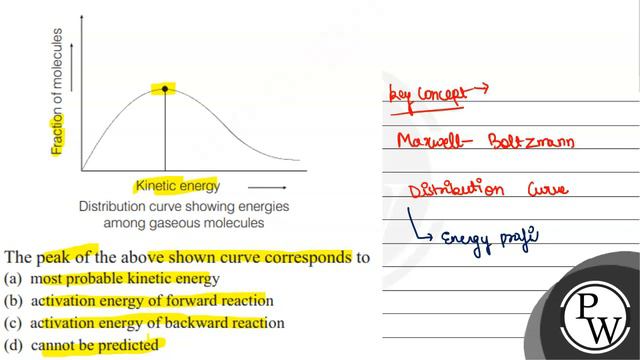 Fraction of molecules
Kinetic energy
Distribution curve showing energies
among gaseous molecules
The peak of the above shown curve corresponds to
(a) most probable kinetic energy
(b) activation energy of forward reaction
(c) activation energy of backward reaction
(d) cannot be predicted
Key Concept
Maxwell- Boltzmann
Distribution Curve
Energy profi
PW